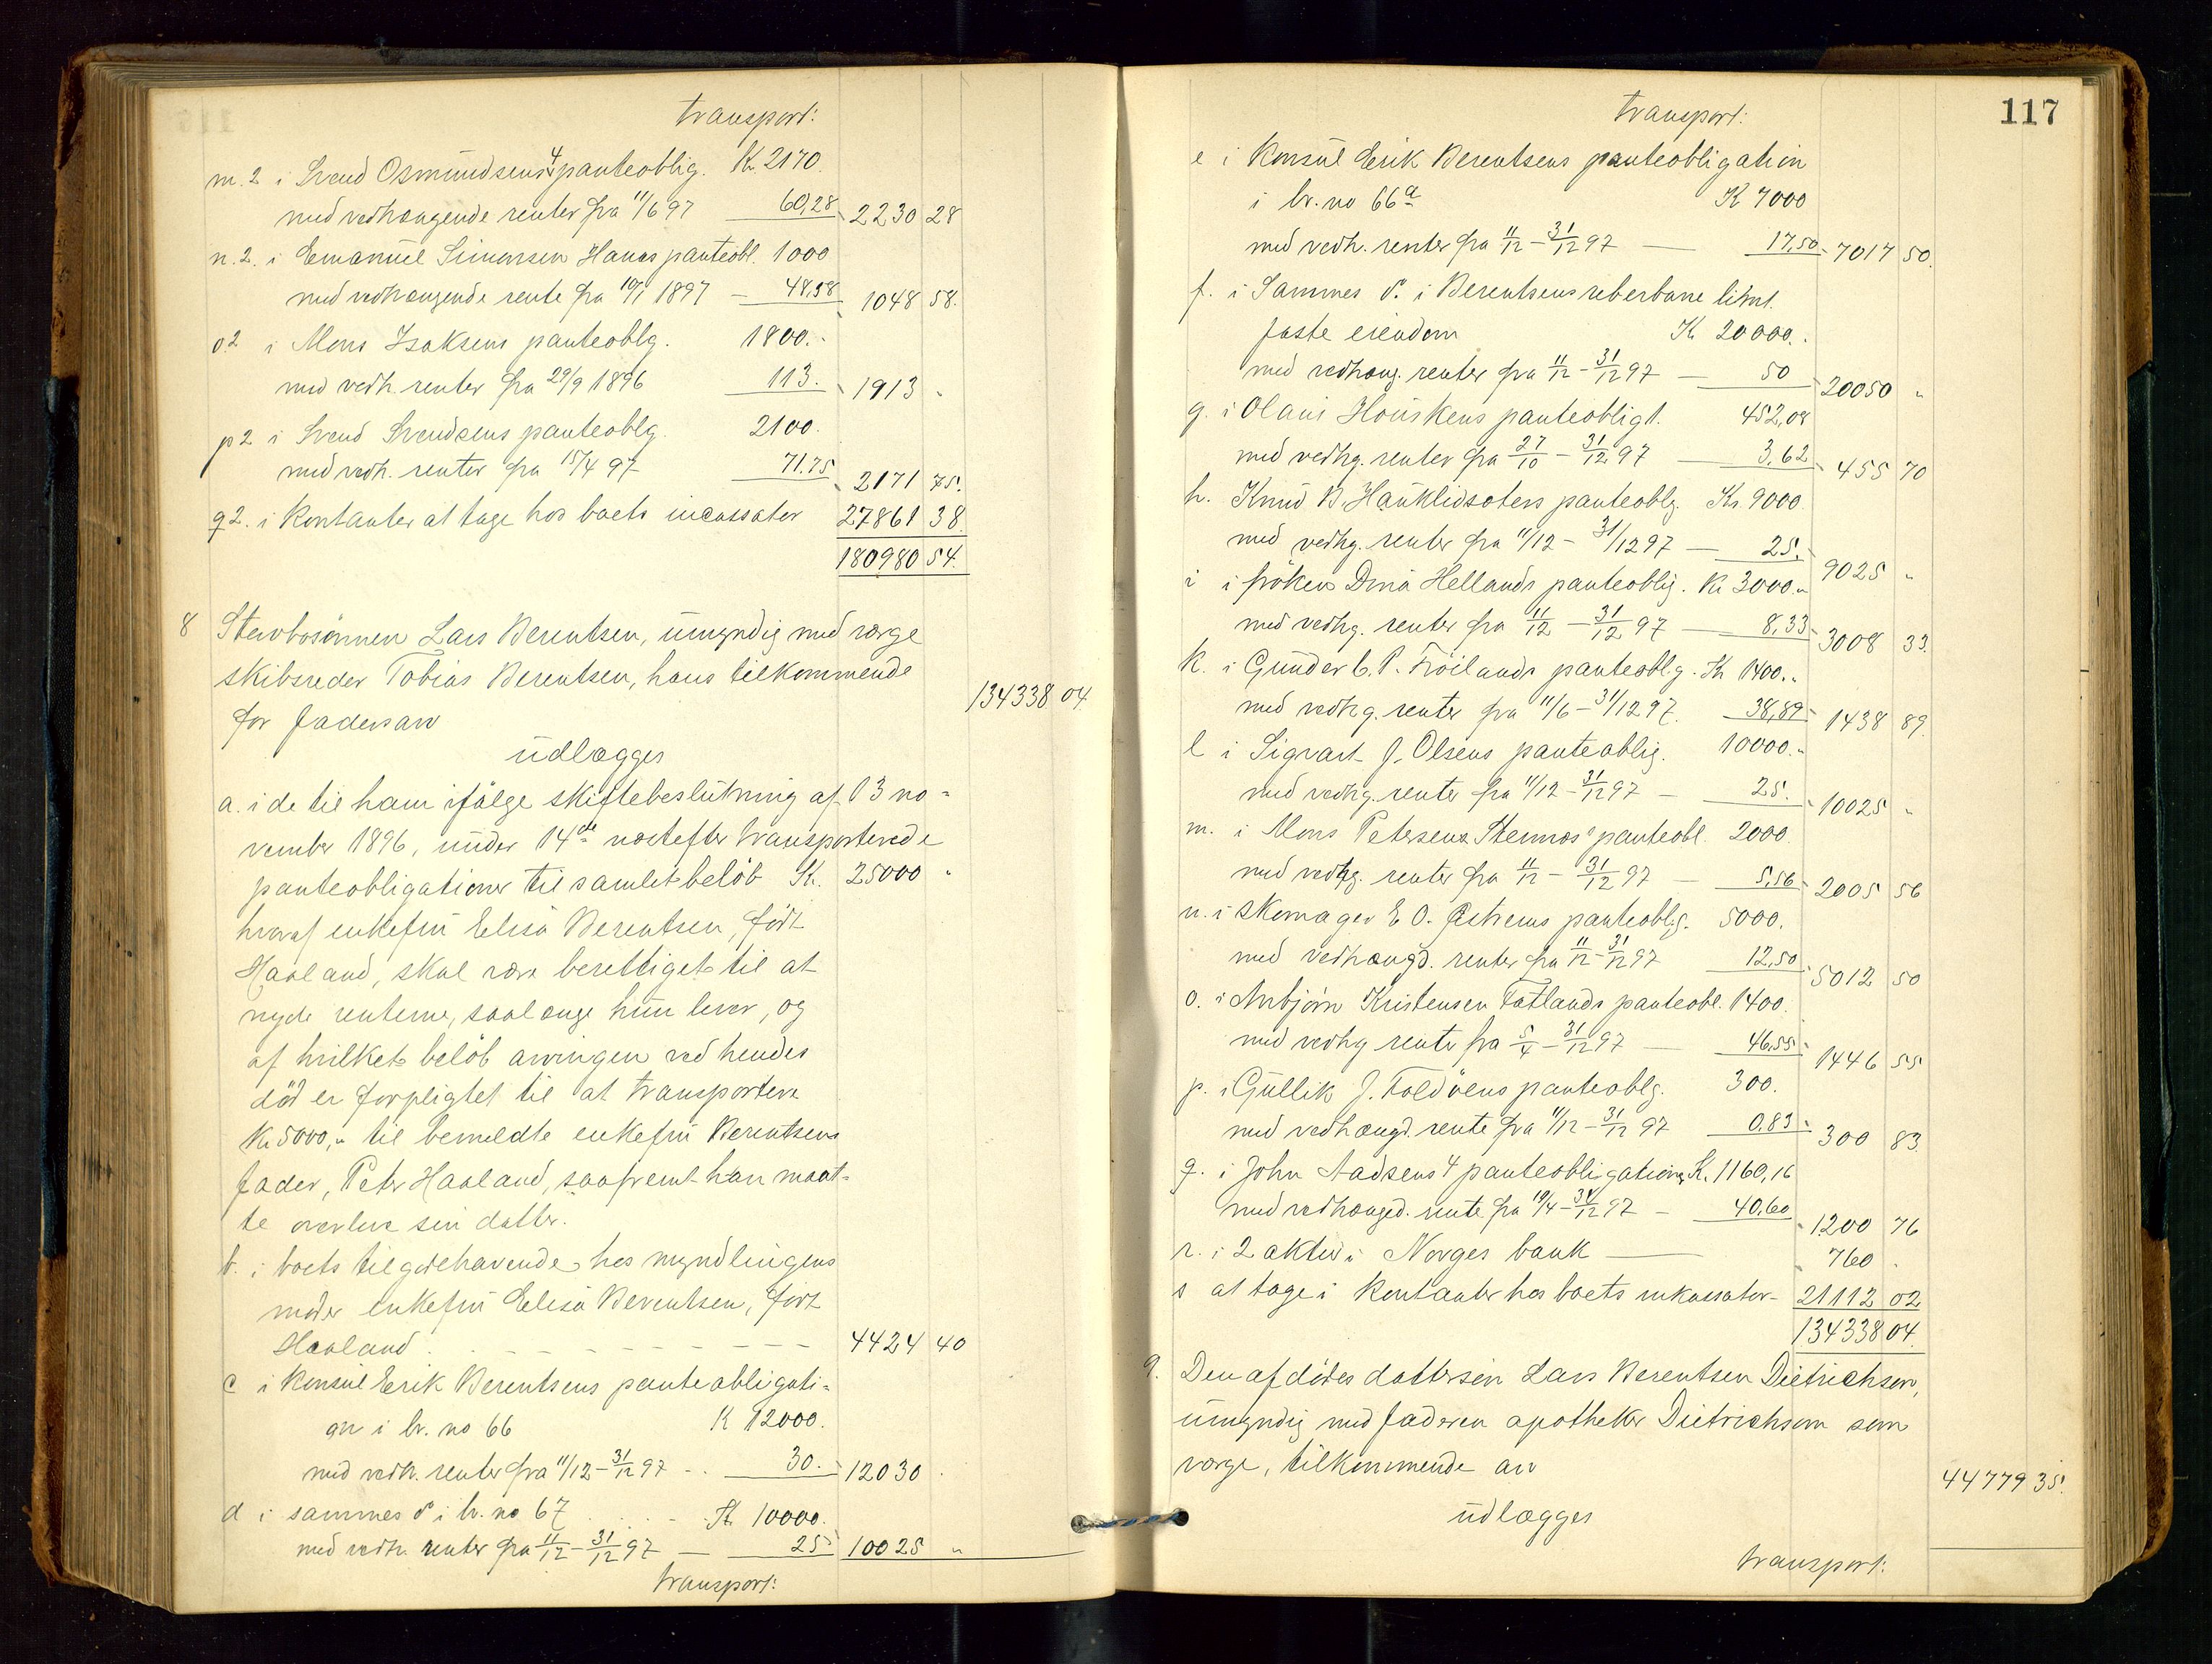 transport:
m.2 i Svend Osmundsens 4 panteoblig. Kr. 2170.
med vedhængende renter fra 11/6 97 60,28 2230 28
n.2. i Emanuel Simonsen Hanas panteobl. 1000
med vedhængende rente fra 10/1 1897 — 48,58 1048 58.
o.2 i Mons Isaksens panteoblg. 1800.
med vedh. renter fra 29/9 1896 113. 1913 "
p2 i Svend Svendsens panteoblg. 2100.
med vedh. renter fra 15/4 97 71.75 2171 75.
q2. i Kontanter at tage hos boets incassator 27861 38
180980 54.
8 Stervbosønnen Lars Berentsen, umyndig med værge
skibsreder Tobias Berentsen, hans tilkommende
for Fadersarv 134338 04
udlægges
a. i de til ham ifølge skiftebeslutning af 13 no=
vember 1896, under 14de næstefter transporterede
panteobligationer til samlet beløb Kr. 25000 "
hvoraf enkefru Elisa Berentsen, født
Haaland, skal være berettiget til at
nyde renterne, saalænge hun lever, og
af hvilket beløb arvingen ved hendes
död er forpligtet til at transportere
Kr 5000,- til bemeldte enkefru Berentsens
fader, Peter Haaland, saafremt han maat=
te overleve sin datter.
b. i boets tilgodehavende hos myndlingens
moder enkefru Elisa Berentsen, født
Haaland . - - - - - - - - - 4424 40
c i Konsul Erik Berentsens panteobligati=
on i br. no 66 K 12000.
med vedh. renter fra 11/12 - 31/12 97 - . 30. 12030 .
d i sammes do i br. no 67 . . . . - Kr 10000.
med vedh. renter fra 11/12 - 31/12 97 — 25 10025 "
transport:
117
transport:
e i Konsul Erik Berentsens panteobligation
i br. no 66a K 7000
med vedh. renter fra 11/12 - 31/12 97 — 17,50 7017 50.
f. i Sammes do. i Berentsens reberbane tilhø.
faste eiendom Kr 20000..
med vedhæng. renter fra 11/12 - 31/12 97 — 50 20050 "
g. i Olaus Houskens panteobligt. 452,08
med vedhg. renter fra 27/10 - 31/12 97 — 3,62 455 70
h. Knud B. Hauklidsæters panteoblg. Kr. 9000
med vedhg. renter fra 11/12 - 31/12 97 — 25. 9025 "
i i frøken Dina Hellands panteoblig. Kr 3000.-
med vedhg. renter fra 11/12 - 31/12 97 — 8,33 3008 33.
K. i Gunder C. P. Frøilands panteoblg. Kr 1400.-
med vedhg. renter fra 11/6 - 31/12 97. 38,89 1438 89.
l i Sigvart J. Olsens panteoblig. 10000.-
med vedhg. renter fra 11/12 - 31/12 97 — 25. 10025 "
m. i Mons Petersens Stennæs panteobl. 2000.
med vedhg. renter fra 11/12 - 31/12 97 — 5,56 2005 56
n. i skomager E O. panteoblg. 5000.
med vedhængd. renter fra 11/12 - 31/12 97 12,50 5012 50
o. i Anbjørn Kristensen Tatlands panteobl. 1400.
med vedhg renter fra 5/4 - 31/12 97 — 46,55 1446 55
p. i Gullik J. Foldöens panteoblg. 300.
med vedhængd. rente fra 11/12 - 31/12 97 0,83 300 83
q. i John Aadsens 4 panteobligationer K. 1160,16
med vedhænged. rente fra 19/4 - 31/12 97 - 40,60 1200 76
r. i 2 aktier i Norges bank — 760 .
s at tage i Kontanter hos boets inkassator - 21112 02
134338 04.
9. Den afdødes dattersøn Lars Berentsen Dietrichson,
umyndig med faderen apotheker Dietrichson som
værge, tilkommende arv 44779 35.
udlægges
transport: